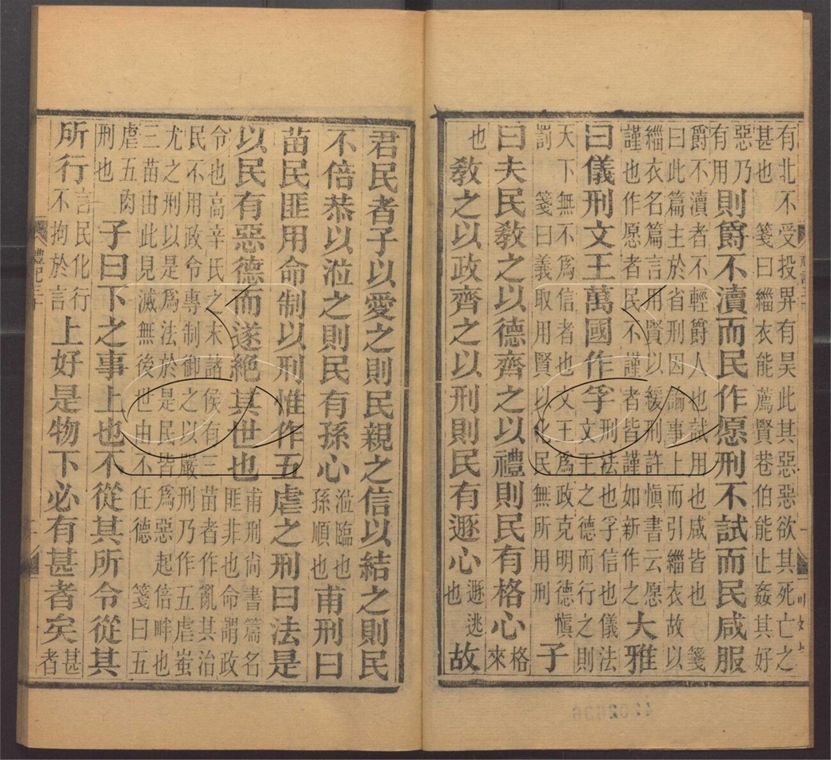 有北不受投畀有昊此其惡惡欲其死亡之
甚也 箋曰緇衣能薦賢巷伯能止姦其好
惡乃有用則爵不瀆而民作愿刑不試而民咸服
爵不瀆者不輕爵人也試用也咸皆也 箋
曰此篇主於省刑因論事上而引緇衣故以
緇衣名篇言用賢以緩刑許愼書云愿
謹也作愿者民不謹者皆謹如新作之大雅
曰儀刑文王萬國作孚刑法也孚信也儀法
文王之德而行之則
天下無不爲信者也文王爲政克明德愼
罰 箋曰義取用賢以化民無所用刑子
曰夫民敎之以德齊之以禮則民有格心格來
也敎之以政齊之以刑則民有遯心遯逃也故
君民者子以愛之則民親之信以結之則民
不倍恭以涖之則民有孫心涖臨也孫順也甫刑曰
苗民匪用命制以刑惟作五虐之刑曰法是
以民有惡德而遂絕其世也甫刑尚書篇名
匪非也命謂政
令也高辛氏之末諸侯有三苗者作亂其治
民不用政令專制御之以嚴刑乃作五虐蚩
尤之刑以是爲法於是民皆爲惡起倍畔也
三苗由此見滅無後世由不任德 箋曰五
虐五肉刑也子曰下之事上也不從其所令從其
所行言民化行不拘於言上好是物下必有甚者矣甚者